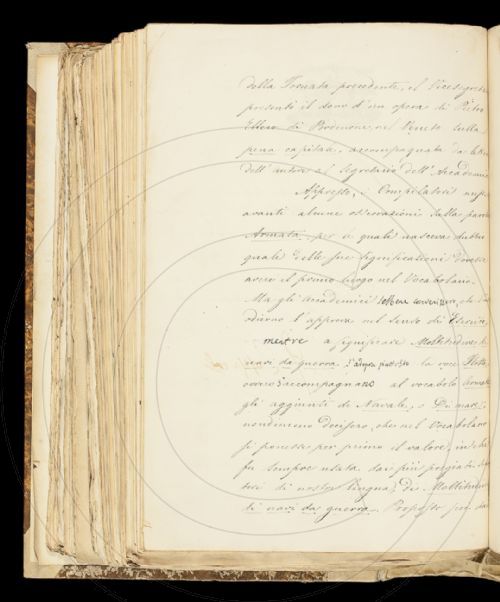 della Tornata precedente, il Vicesegretario
presentò il dono d'un opera di Pietro
Ellero di Pordenone, nel Veneto sulla
pena capitale, accompagnata da lettera
dell'autore al Segretario dell'Accademia
Appresso, i Compilatori
avanti alcune osservazioni sulla parola
Armata, per le quali nasceva dubbio
quali delle sue significazioni dovesse
avere il primo luogo nel Vocabolario.
Ma gli Accademici sebbene
l'approva nel senso di Esercito,
mentre a significare Moltitudine di
navi da guerra, s'adopra piuttosto la voce Flotta
ovvero s'accompagnano al vocabolo Armata
gli aggiunti di Navale, o Di mare;
nondimeno decisero, che nel Vocabolario
si ponesse per primo il valore, in che
fu sempre usata dai più pregiati
di nostra lingua, di Moltitudine
di navi da guerra. Proposto